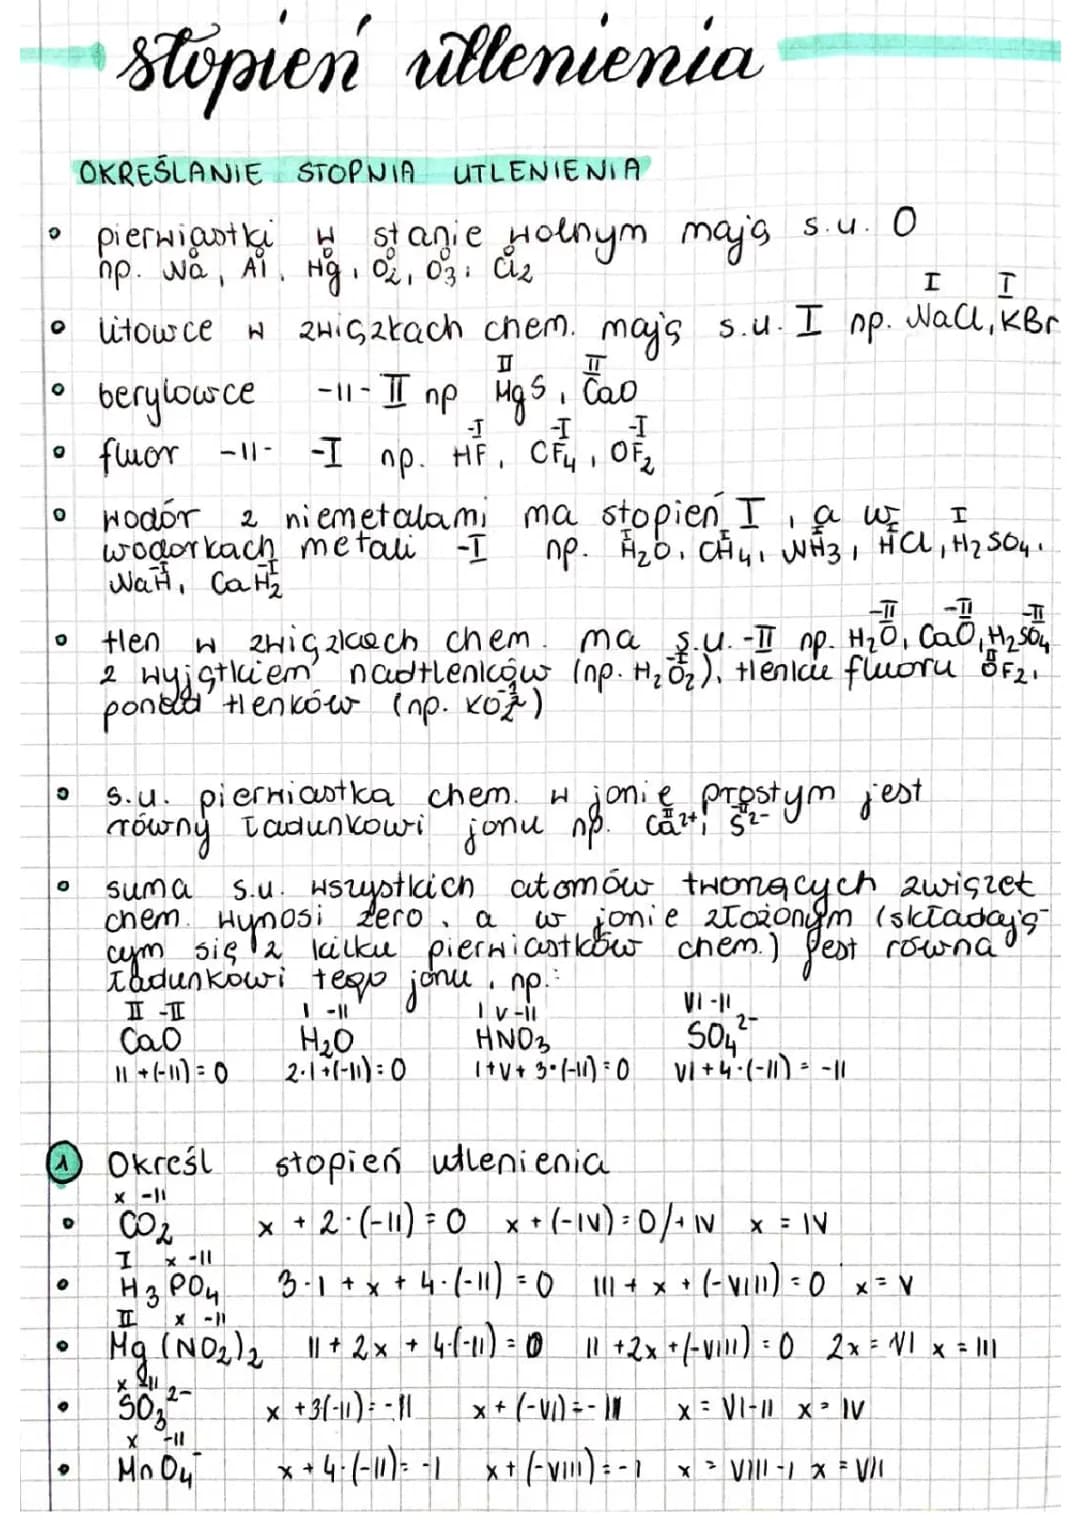 stopień utlenienia
OKREŚLANIE STOPNIA UTLENIENIA
• pierwiastki w stanie wolnym mają s.u. 0
0 0 0 0 0 0
np. Na, Al, Hg, O₂, O₃, Cl₂
I I
• litowce w związkach chem. mają s.u. I np. NaCl, KBr
II II
• berylowce -11- II np MgS, CaO
-I -I -I
• fluor -11- -I np. HF, CF₄, OF₂
• wodór z niemetalami ma stopień I, a w
I I I I I
wodorkach metali -I np. H₂O, CH₄, NH₃, HCl, H₂SO₄.
-I -I
NaH, CaH₂
-II -II -II
• tlen w związkach chem. ma s.u. -II np. H₂O, CaO, H₂SO₄
z wyjątkiem nadtlenków (np. H₂O₂), tlenku fluoru OF₂,
ponad tlenków (np. KO₂)
• s.u. pierwiastka chem. w jonie prostym jest
równy ładunkowi jonu np. Ca²⁺, S²⁻
• suma s.u. wszystkich atomów tworzących związek
chem. wynosi zero, a w jonie złożonym (składają-
cym się z kilku pierwiastków chem.) jest równa
ładunkowi tego jonu, np.:
II -II I -II I V -II VI -II
CaO H₂O HNO₃ SO₄²⁻
II + (-II) = 0 2·I + (-II) = 0 I + V + 3·(-II) = 0 VI + 4·(-II) = -II
1 Określ stopień utlenienia
x -II
• CO₂ x + 2·(-II) = 0 x + (-IV) = 0 /+ IV x = IV
I x -II
• H₃PO₄ 3·I + x + 4·(-II) = 0 III + x + (-VIII) = 0 x = V
II x -II
• Mg(NO₂)₂ II + 2x + 4·(-II) = 0 II + 2x + (-VIII) = 0 2x = VI x = III
x -II
• SO₃²⁻ x + 3(-II) = -II x + (-VI) = -II x = VI-II x = IV
x -II
• MnO₄⁻ x + 4·(-II) = -I x + (-VIII) = -I x = VIII - I x = VII